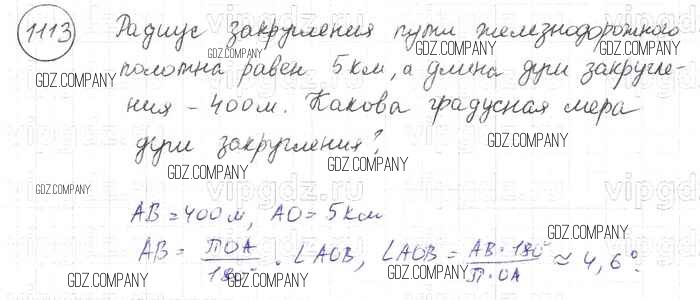 1113 Радиус закругления пути железнодорожного
полотна равен 5 км, а длина дуги закругле-
ния - 400 м. Какова градусная мера
дуги закругления?
AB = 400 м, AO = 5 км
AB = ПOA / 180° · ∠AOB, ∠AOB = AB · 180° / П · OA ≈ 4,6°.
GDZ.COMPANY
GDZ.COMPANY
GDZ.COMPANY
GDZ.COMPANY
GDZ.COMPANY
GDZ.COMPANY
GDZ.COMPANY
GDZ.COMPANY
GDZ.COMPANY
GDZ.COMPANY
vipgdz.ru